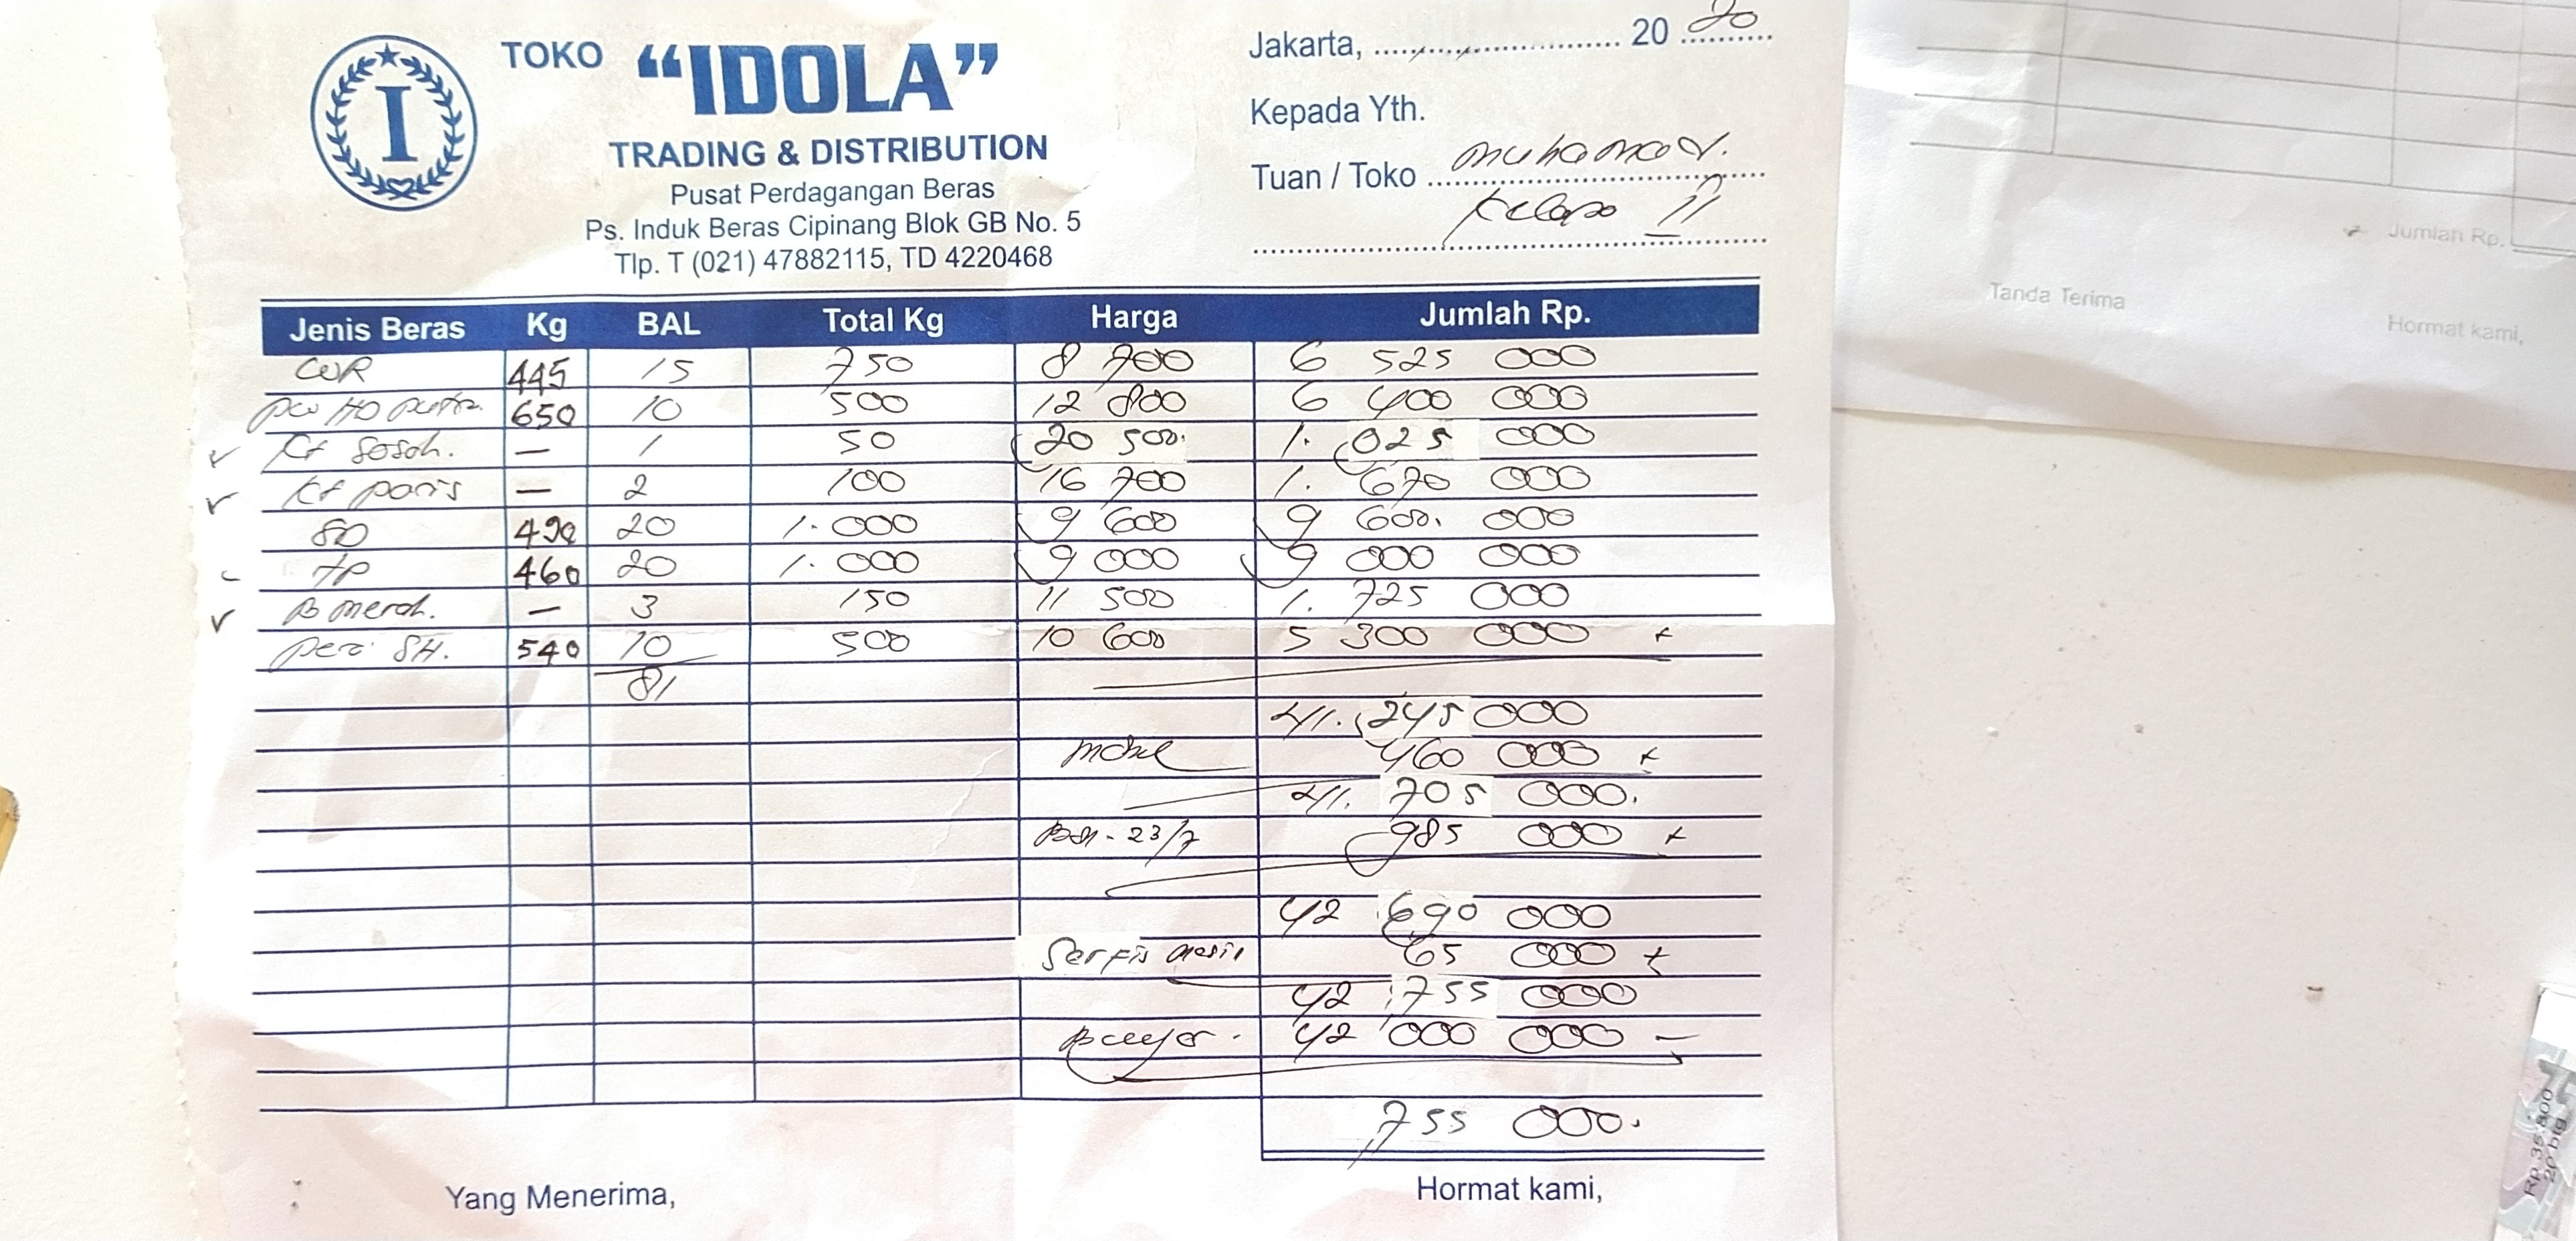 TOKO "IDOLA"
TRADING & DISTRIBUTION
Pusat Perdagangan Beras
Ps. Induk Beras Cipinang Blok GB No. 5
Tlp. T (021) 47882115, TD 4220468
I
Jakarta, .......................... 20 20
Kepada Yth.
Tuan / Toko muhamad.
Kelapa II
Jenis Beras Kg BAL Total Kg Harga Jumlah Rp.
445 15 750 8 700 6 525 000
650 10 500 12 800 6 400 000
Kt — 1 50 20 500. 1. 025 000
Kt paris — 2 100 16 700 1. 670 000
490 20 1. 000 9 600 9 600. 000
460 20 1. 000 9 000 9 000 000
B merah. — 3 150 11 500 1. 725 000
SH. 540 10 500 10 600 5 300 000 +
81
41. 245 000
460 000 +
41. 705 000.
23/7 985 000 +
42 690 000
Serfis mesin 65 000 +
42 755 000
Bayar - 42 000 000 —
755 000.
Yang Menerima,
Hormat kami,
Jumlah Rp.
Tanda Terima
Hormat kami,
Rp 35.800
20 btg